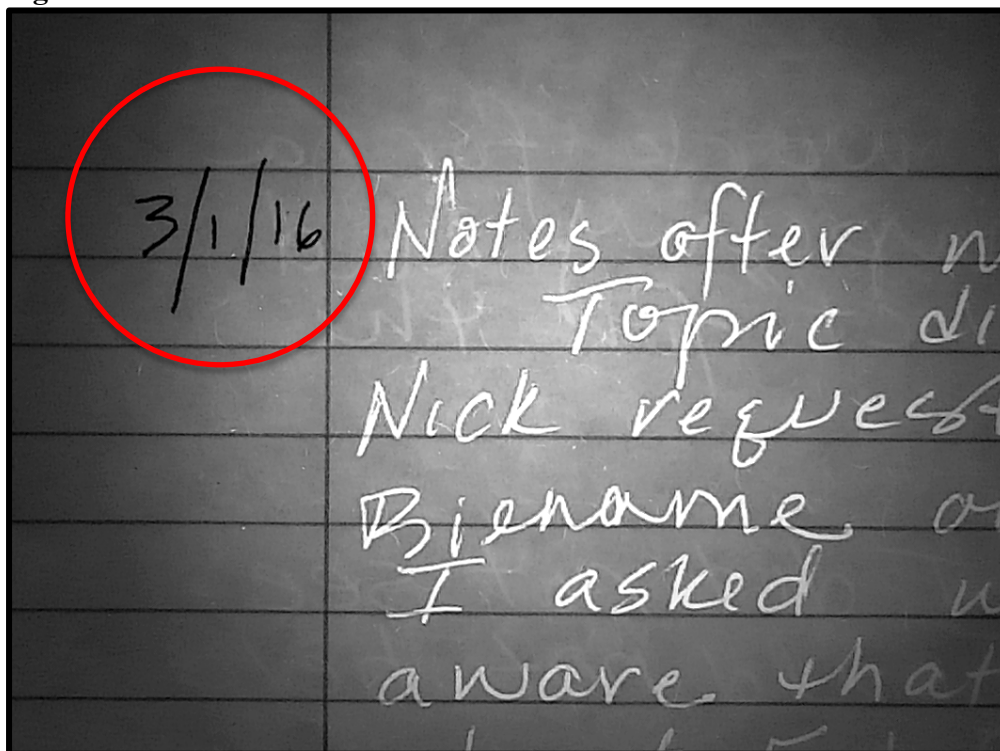 3/1/16 Notes after
Topic
Nick
Biename
I asked
aware that